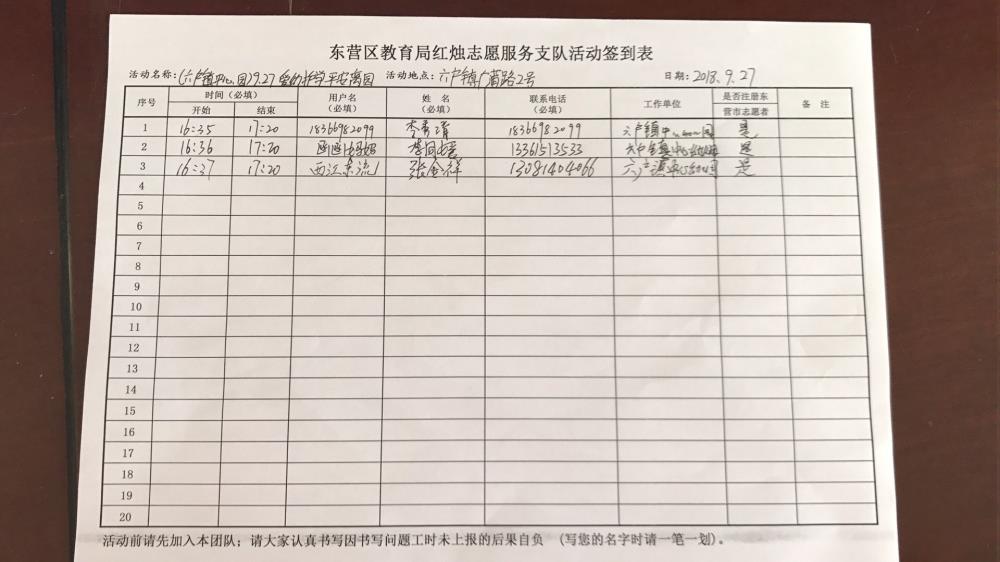 东营区教育局红烛志愿服务支队活动签到表
活动名称:(六户镇中心园)9.27爱的护学平安离园 活动地点:六户镇广蒲路2号 日期:2018.9.27
序号 时间(必填) 用户名(必填) 姓名(必填) 联系电话(必填) 工作单位 是否注册东营市志愿者 备注
开始 结束
1 16:35 17:20 18366982099 李秀清 18366982099 六户镇中心幼儿园 是
2 16:36 17:20 函函妈妈 13361513533 六户镇中心幼儿园 是
3 16:37 17:20 西江东流1 张金祥 13081404066 六户镇中心幼儿园 是
4
5
6
7
8
9
10
11
12
13
14
15
16
17
18
19
20
活动前请先加入本团队;请大家认真书写因书写问题工时未上报的后果自负 (写您的名字时请一笔一划)。